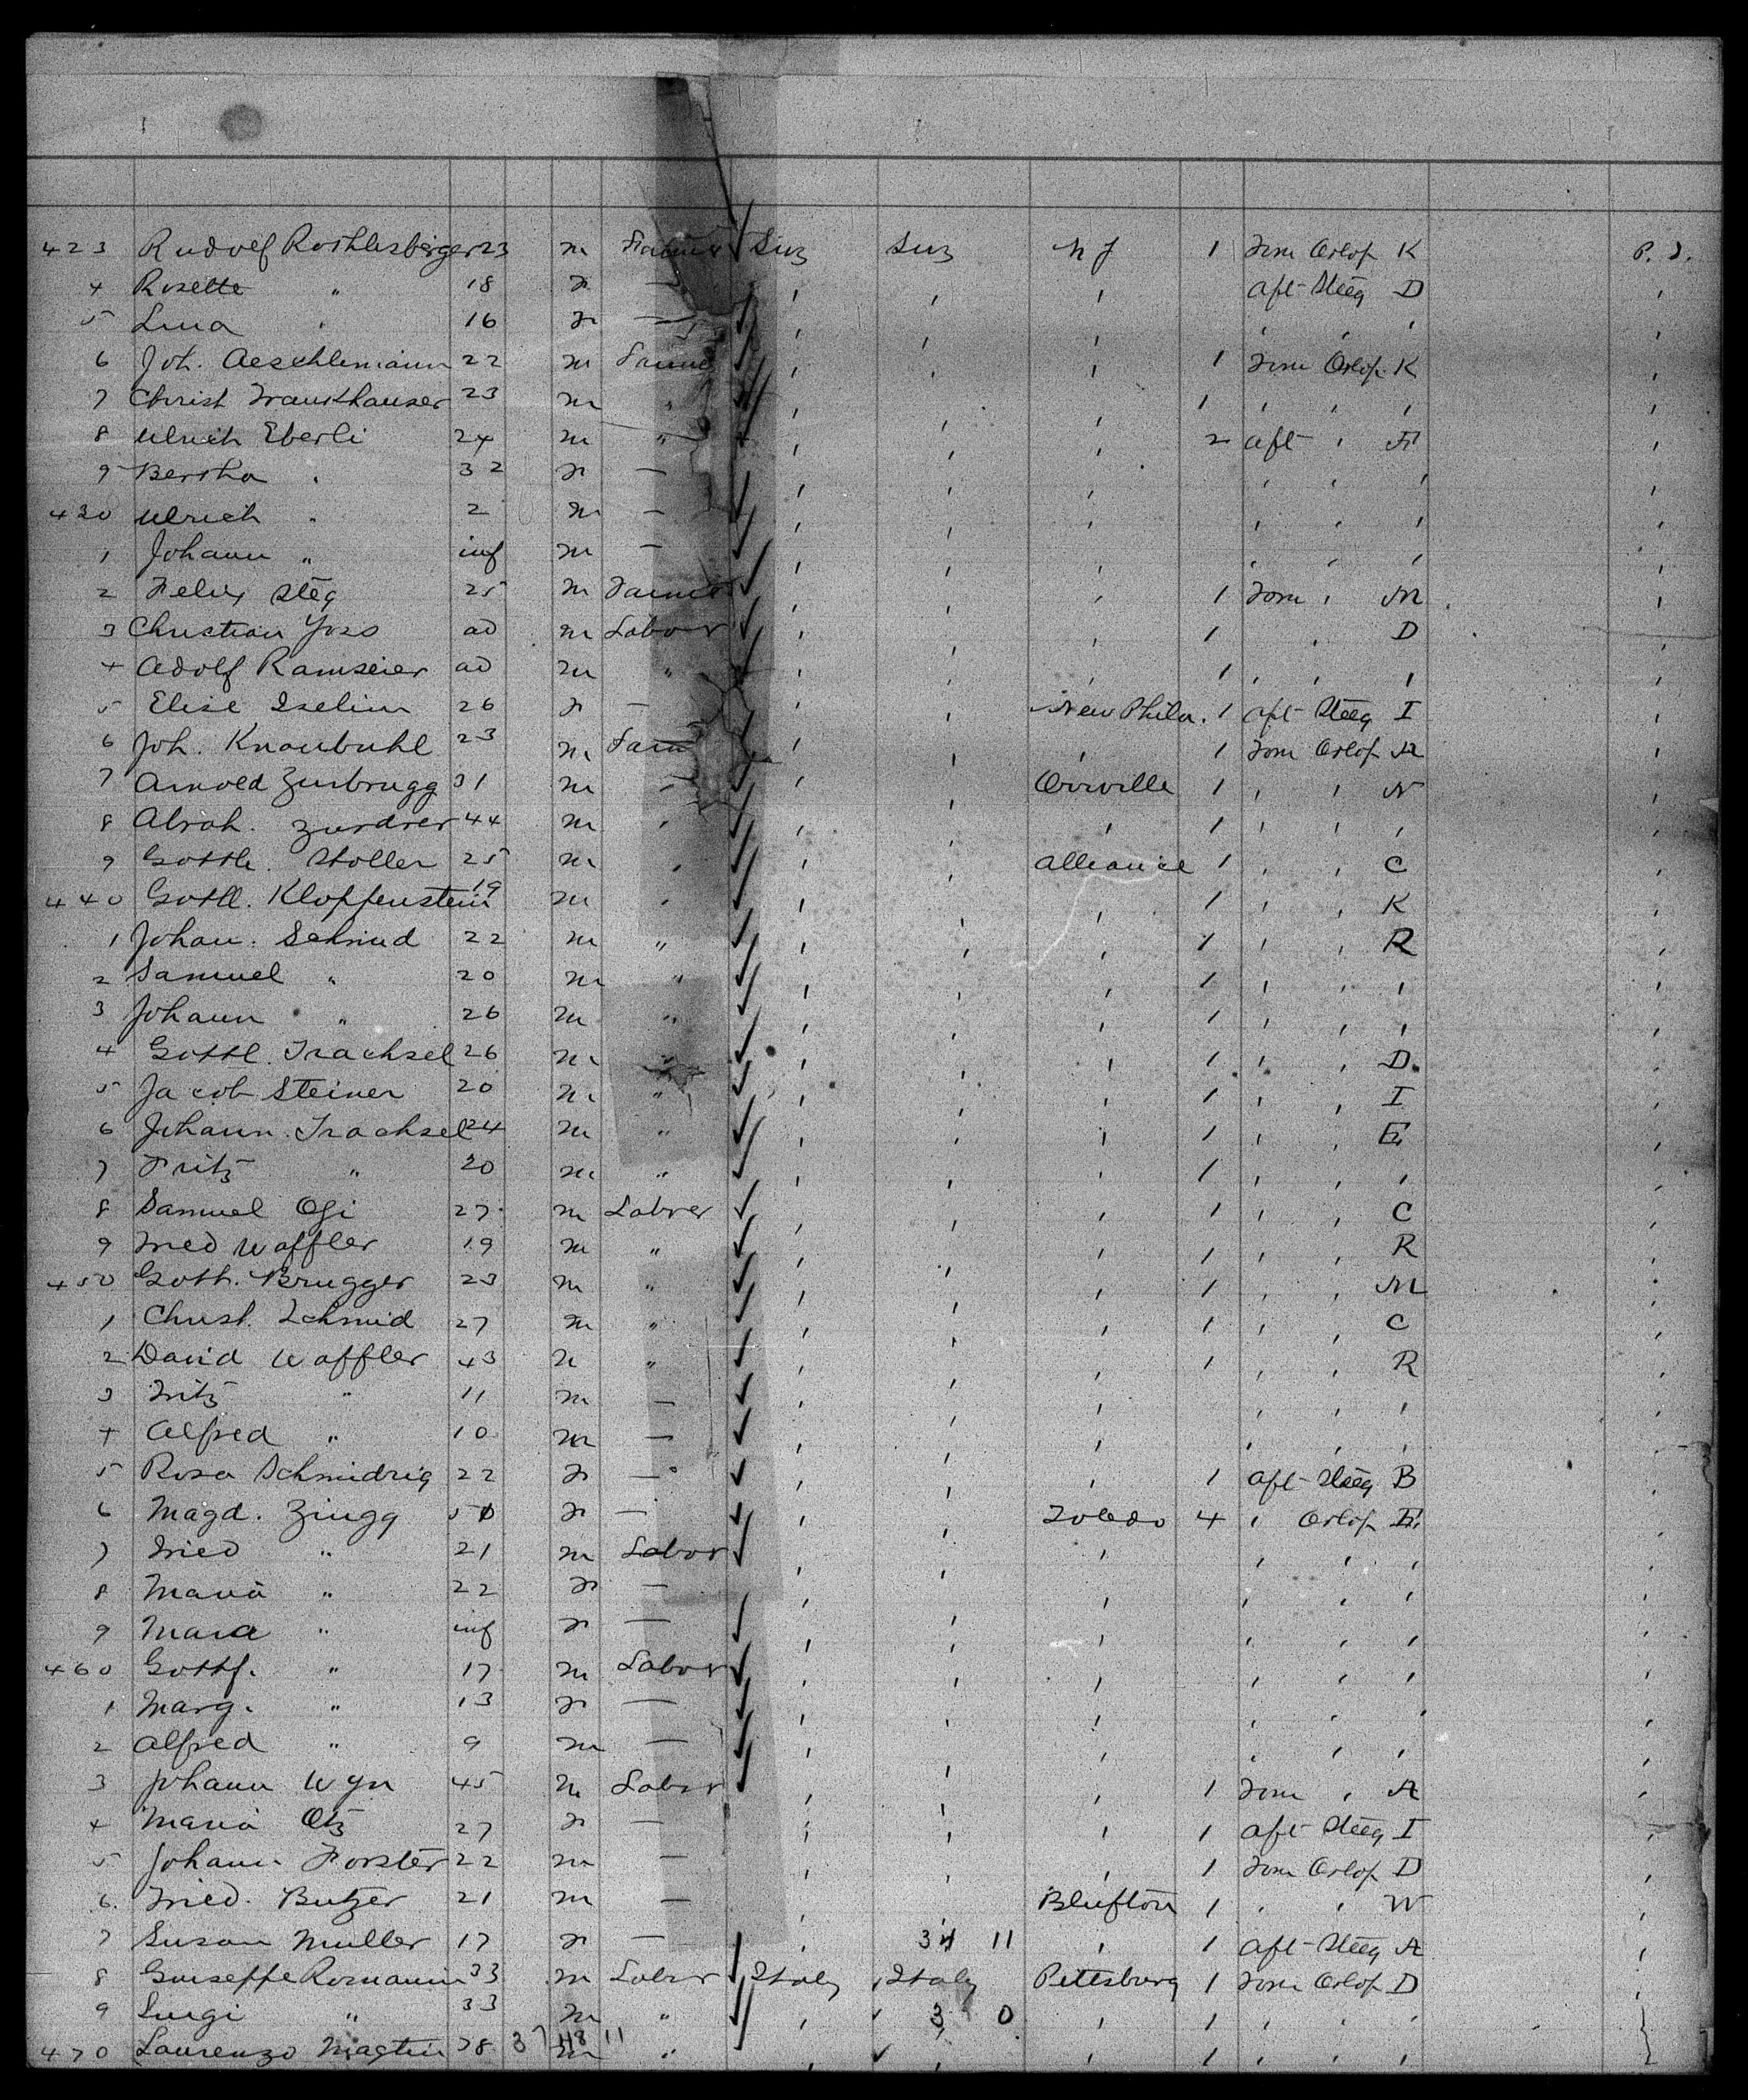 423 Rudolf Rothlisberger 23 m Farmer ✓ Suz Suz N J 1 Forw Orlop K P. S.
4 Rosette " 18 F — ✓ , , , Aft Steeg D ,
5 Lina " 16 F — ✓ , , , , , , ,
6 Joh. Aeschlemann 22 m Farmer ✓ , , , 1 Forw Orlop K ,
7 Christ Frankhauser 23 m " ✓ , , , 1 , , , ,
8 Ulrich Eberli 24 m " ✓ , , , 2 aft , ,
9 Bertha " 32 F — ✓ , , , , , , ,
430 Ulrich " 2 m — ✓ , , , , , , ,
1 Johann " inf m — ✓ , , , , , , ,
2 Felix Steg 25 m Farmer ✓ , , , 1 Forw , M ,
3 Christian Joss ad m Labor ✓ , , , 1 , D ,
4 Adolf Ramseier ad m " ✓ , , , 1 , , , ,
5 Elise Iselin 26 F — ✓ , , New Phila. 1 aft Steeg I ,
6 Joh. Knaubuhl 23 m Farm ✓ , , , 1 Forw Orlop A ,
7 Arnold Zurbrugg 31 m " ✓ , , Orrville 1 , , N ,
8 Abrah. 44 m , ✓ , , , 1 , , , ,
9 Gottl. Stoller 25 m , ✓ , , Alliance 1 , , C ,
440 Gottl. Kloppenstein 19 m , ✓ , , , 1 , , K ,
1 Johan. Schmid 22 m " ✓ , , , 1 , , R ,
2 Samuel " 20 m " ✓ , , , 1 , , , ,
3 Johann " 26 m " ✓ , , , 1 , , , ,
4 Gottl. Trachsel 26 m " ✓ , , , 1 , , D ,
5 Jacob Steiner 20 m " ✓ , , , 1 , , I ,
6 Johann. Trachsel 24 m " ✓ , , , 1 , , E ,
7 Fritz " 20 m " ✓ , , , 1 , , , ,
8 Samuel Ogi 27 m Laborer ✓ , , , 1 , , C ,
9 Fried Waffler 19 m " ✓ , , , 1 , , R ,
450 Gott. Brugger 23 m " ✓ , , , 1 , , M ,
1 Christ. Schmid 27 m " ✓ , , , 1 , , C ,
2 David Waffler 43 m " ✓ , , , 1 , , R ,
3 Fritz " 11 m — ✓ , , , , , , ,
4 Alfred " 10 m — ✓ , , , , , , ,
5 Rosa Schmidrig 22 F — ✓ , , , 1 aft Steeg B ,
6 Magd. Zingg F — ✓ , , Toledo 4 , Orlop E ,
7 Fried " 21 m Labor ✓ , , , , , , ,
8 Maria " 22 F — , , , , , , ,
9 Maria " inf F — ✓ , , , , , , ,
460 Gottf. " 17 m Labor ✓ , , , , , , ,
1 Marg. " 13 F — ✓ , , , , , , ,
2 Alfred " 9 m — ✓ , , , , , , ,
3 Johann Wyn 45 m Labor ✓ , , , 1 Forw , A ,
4 Maria Otz 27 F — , , , 1 aft Steeg I ,
5 Johann Forster 22 m — , , , 1 Forw Orlop D ,
6. Fried. Butzer 21 m — , , Blufton 1 , , W ,
7 Susan Muller 17 F — , 34 11 , 1 aft Steeg A ,
8 Guiseppe Romanin 33 m Labor ✓ Italy Italy Pittsburg 1 Forw Orlop D ,
9 Luigi " 33 m " ✓ , ✓ 3 0 , 1 , , ,
470 Laurenzo 28 37 48 11 m " , ✓ , , 1 , , ,